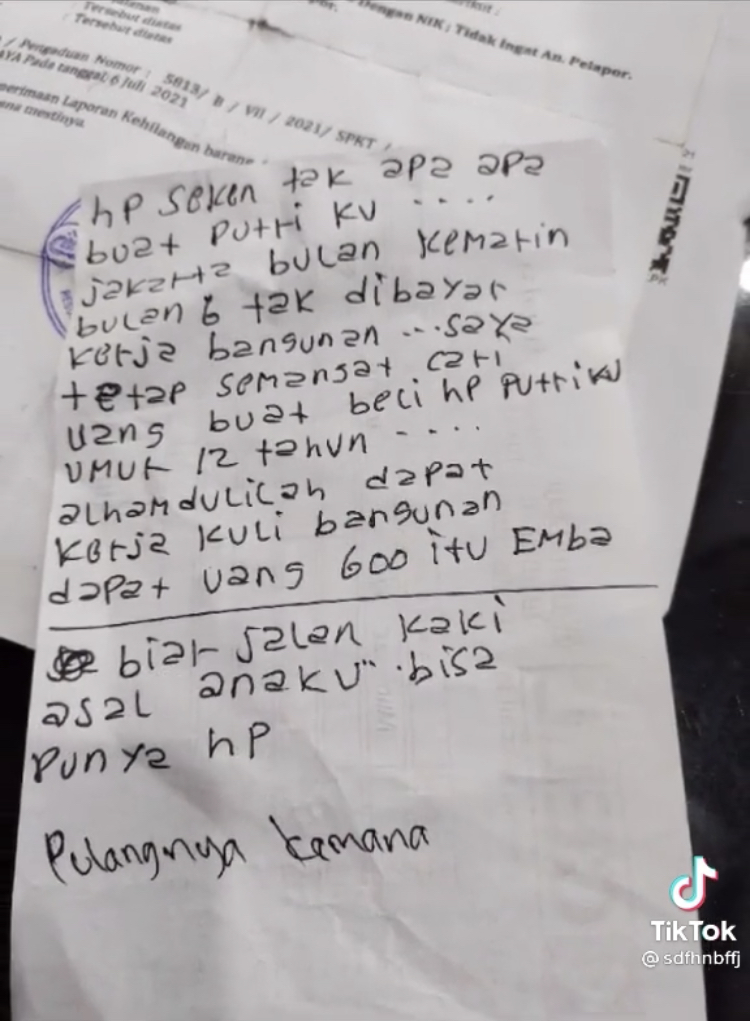 Tersebut diatas
Tersebut diatas
Dengan NIK : Tidak Ingat An. Pelapor.
/ Pengaduan Nomor : 5813/ B / VII / 2021/ SPKT /
Pada tanggal, 6 Juli 2021
Laporan Kehilangan barang
mestinya.
hp seken tak apa apa
buat putri ku ....
jakarta bulan kemarin
bulan 6 tak dibayar
kerja bangunan ... saya
tetap semangat cari
uang buat beli hp putriku
umur 12 tahun ....
alhamdulilah dapat
kerja kuli bangunan
dapat uang 600 itu Emba
biar jalan kaki
asal anaku" bisa
punya hp
Pulangnya kemana
TikTok
@sdfhnbffj